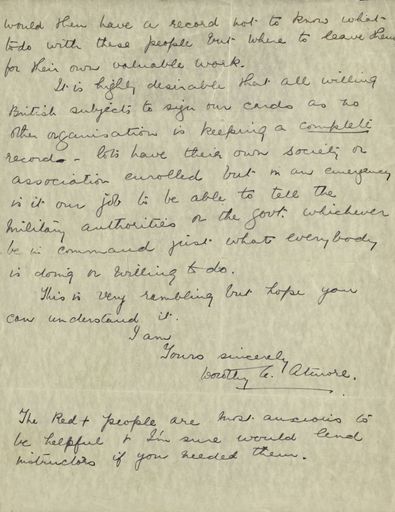 would then have a record not to know what
to do with these people but where to leave them
for their own valuable work.
It is highly desirable that all willing
British subjects to sign our cards as no
other organisation is keeping a complete
record - lots have their own society or
association enrolled but in an emergency
is it our job to be able to tell the
military authorities or the govt. whichever
be in command just what everybody
is doing or willing to do.
This is very rambling but hope you
can understand it.
I am
Yours sincerely
Dorothy C. Atmore.
The Red + people are most anxious to
be helpful & I'm sure would lend
instructors if you needed them.